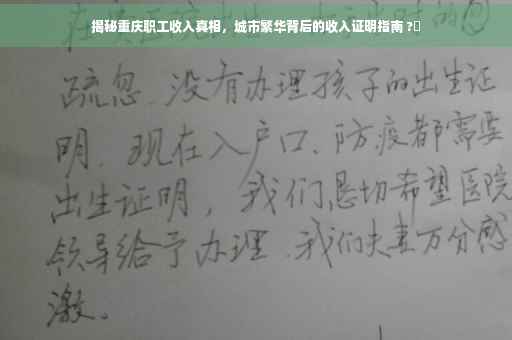 揭秘重庆职工收入真相，城市繁华背后的收入证明指南？
时的
疏忽、没有办理孩子的出生证
明、现在入户口、防疫都需要
出生证明，我们恳切希望医院
领导给予办理、我们夫妻万分感
激。